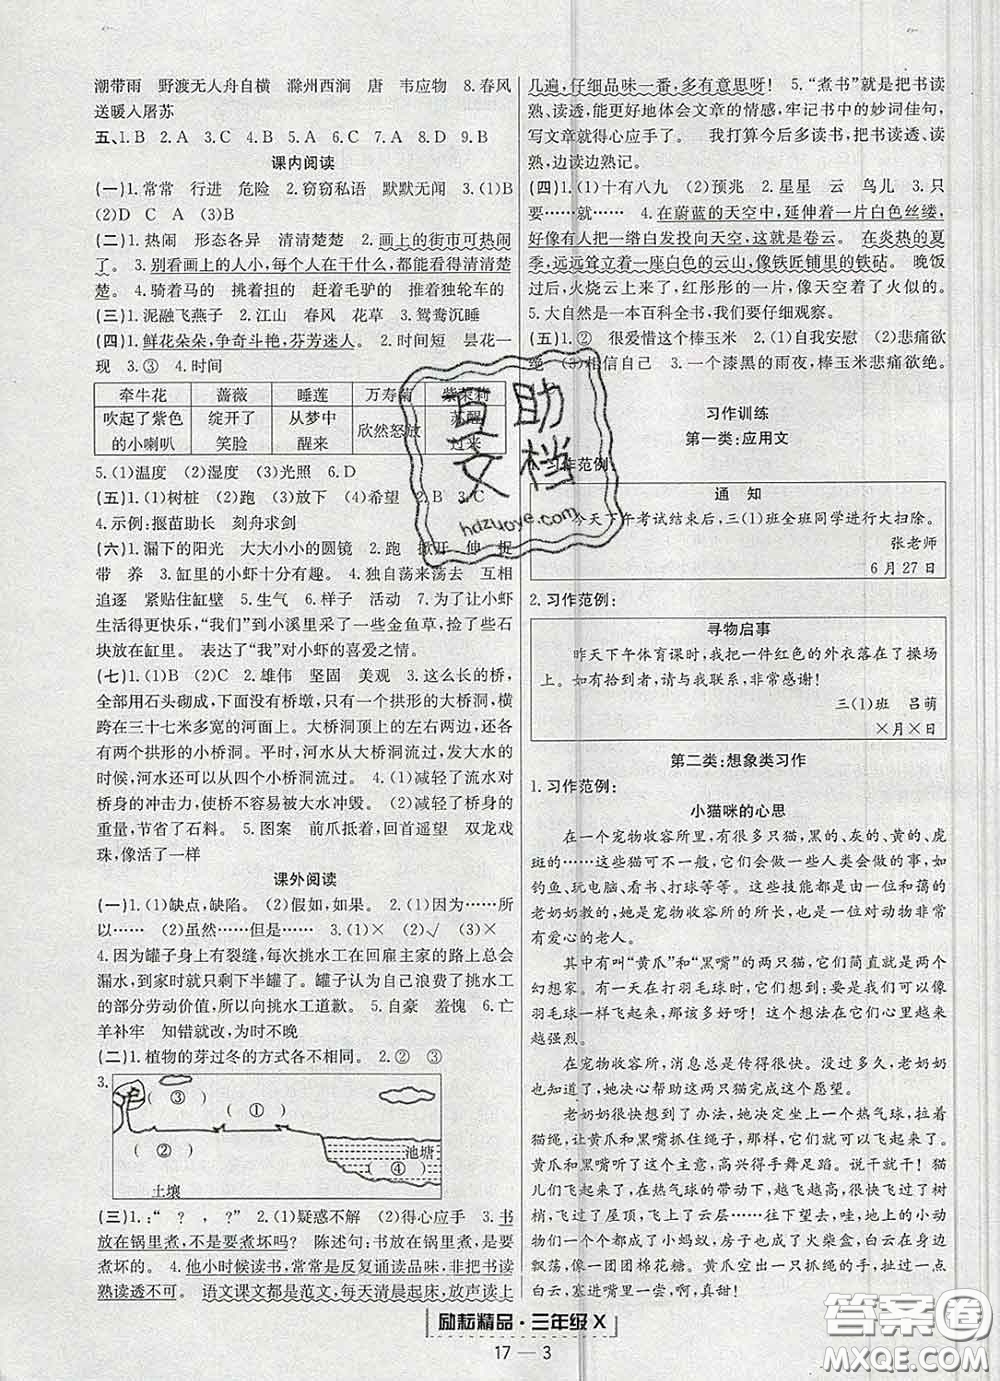 潮带雨　野渡无人舟自横　滁州西涧　唐　韦应物　8.春风
送暖入屠苏
五、1.B　2.A　3.C　4.B　5.A　6.C　7.A　8.D　9.B
课内阅读
(一)1.常常　行进　危险　2.窃窃私语　默默无闻　3.(1)B
(2)D　C　A　(3)B
(二)1.热闹　形态各异　清清楚楚　2.画上的街市可热闹
了。　3.别看画上的人小,每个人在干什么,都能看得清清楚
楚。　4.骑着马的　挑着担的　赶着毛驴的　推着独轮车的
(三)1.泥融飞燕子　2.江山　春风　花草　3.鸳鸯沉睡
(四)1.鲜花朵朵,争奇斗艳,芬芳迷人。　2.时间短　昙花一
现　3.③　4.时间
牵牛花　蔷薇　睡莲　万寿菊　紫茉莉
吹起了紫色的小喇叭　绽开了笑脸　从梦中醒来　欣然怒放　苏醒过来
5.(1)温度　(2)湿度　(3)光照　6.D
(五)1.(1)树桩　(2)跑　(3)放下　(4)希望　2.B　3.C
4.示例:揠苗助长　刻舟求剑
(六)1.漏下的阳光　大大小小的圆镜　2.跑　掀开　伸　捉
带　养　3.缸里的小虾十分有趣。　4.独自荡来荡去　互相
追逐　紧贴住缸壁　5.生气　6.样子　活动　7.为了让小虾
生活得更快乐,“我们”到小溪里采了一些金鱼草,捡了些石
块放在缸里。　表达了“我”对小虾的喜爱之情。
(七)1.(1)B　(2)C　2.雄伟　坚固　美观　3.这么长的桥,
全部用石头砌成,下面没有桥墩,只有一个拱形的大桥洞,横
跨在三十七米多宽的河面上。大桥洞顶上的左右两边,还各
有两个拱形的小桥洞。平时,河水从大桥洞流过,发大水的
时候,河水还可以从四个小桥洞流过。　4.(1)减轻了流水对
桥身的冲击力,使桥不容易被大水冲毁。　(2)减轻了桥身的
重量,节省了石料。　5.图案　前爪抵着,回首遥望　双龙戏
珠,像活了一样
课外阅读
(一)1.(1)缺点,缺陷。　(2)假如,如果。　2.(1)因为……所
以……　(2)虽然……但是……　3.(1)×　(2)√　(3)×
4.因为罐子身上有裂缝,每次挑水工在回雇主家的路上总会
漏水,到家时就只剩下半罐了。罐子认为自己浪费了挑水工
的部分劳动价值,所以向挑水工道歉。　5.自豪　羞愧　6.亡
羊补牢　知错就改,为时不晚
(二)1.植物的芽过冬的方式各不相同。　2.②　③
3.
(③)
(①)
(②)
池塘
(④)
土壤
(三)1.:“　?　,　?　”　2.(1)疑惑不解　(2)得心应手　3.书
放在锅里煮,不是要煮坏吗?　陈述句:书放在锅里煮,是要
煮坏的。　4.他小时候读书,常常是反复诵读品味,非把书读
熟读透不可。　语文课文都是范文,每天清晨起床,放声读上
几遍,仔细品味一番,多有意思呀!　5.“煮书”就是把书读
熟、读透,能更好地体会文章的情感,牢记书中的妙词佳句,
写文章就得心应手了。　我打算今后多读书,把书读透、读
熟,边读边熟记。
(四)1.(1)十有八九　(2)预兆　2.星星　云　鸟儿　3.只
要……就……　4.在蔚蓝的天空中,延展着一片白色丝缕,
好像有人把一绺白发投向天空,这就是卷云。　在炎热的夏
季,远远耸立着一座白色的云山,像铁匠铺里的铁砧。　晚饭
过后,火烧云上来了,红彤彤的一片,像天空着了火似的。
5.大自然是一本百科全书,我们要仔细观察。
(五)1.②　很爱惜这个棒玉米　2.(1)自我安慰　(2)悲痛欲
绝　(3)相信自己　3.一个漆黑的雨夜,棒玉米悲痛欲绝。
习作训练
第一类:应用文
1.习作范例:
通　知
今天下午考试结束后,三(1)班全班同学进行大扫除。
张老师
6月27日
2.习作范例:
寻物启事
昨天下午体育课时,我把一件红色的外衣落在了操场
上。如有拾到者,请与我联系,非常感谢!
三(1)班　吕萌
×月×日
第二类:想象类习作
1.习作范例:
小猫咪的心思
在一个宠物收容所里,有很多只猫,黑的、灰的、黄的、虎
斑的……这些猫可不一般,它们会做一些人类会做的事,如
钓鱼、玩电脑、看书、打球等等。这些技能都是一位和蔼的
老奶奶教的,她是宠物收容所的所长,也是一位对动物非常
有爱心的老人。
其中有叫“黄瓜”和“黑嘴”的两只猫,它们简直就是两个
幻想家。有一天在打羽毛球时,它们突发奇想:可以像鸟和
羽毛球一样飞起来,该有多好啊!于是,它们整日闷闷不乐,
幻想着能飞起来。
在宠物收容所,消息总是传得很快。没过多久,老奶奶
也知道了,她决心帮助这两只猫完成这个愿望。
老奶奶很快想到了办法,她决定坐上一个热气球,拉着
猫绳,让黄瓜和黑嘴抓住绳子,那样,它们就可以飞起来了。
黄瓜和黑嘴听了这个主意,高兴得手舞足蹈。说干就干!猫
儿们坐上飞船,在热气球的带动下,越飞越高,它们飞过了树
梢,飞过了屋顶,飞上了云层……往下望去,哇,地上的小动
物们一个个都成了小蚂蚁,房子也成了火柴盒,白云在身边
飘荡,像一团团棉花糖。黄瓜空出一只抓绳的手,抓来一把
白云,塞进嘴里一尝,啊,真甜!
励耘精品·三年级X
17—3
互助文档
hdzuoye.com
答案圈
MXQE.COM